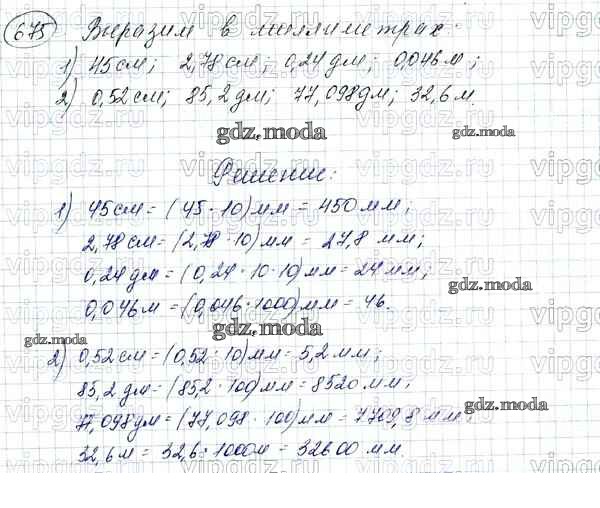 675 Выразим в миллиметрах:
1) 45 см; 2,78 см; 0,24 дм; 0,046 м;
2) 0,52 см; 85,2 дм; 77,098 дм; 32,6 м.
gdz.moda
gdz.moda
Решение:
1) 45 см = (45 · 10) мм = 450 мм;
2,78 см = (2,78 · 10) мм = 27,8 мм;
0,24 дм = (0,24 · 10 · 10) мм = 24 мм;
gdz.moda
0,046 м = (0,046 · 1000) мм = 46.
gdz.moda
gdz.moda
2) 0,52 см = (0,52 · 10) мм = 5,2 мм;
85,2 дм = (85,2 · 100) мм = 8520 мм;
gdz.moda
77,098 дм = (77,098 · 100) мм = 7709,8 мм;
32,6 м = 32,6 · 1000 м = 32600 мм.